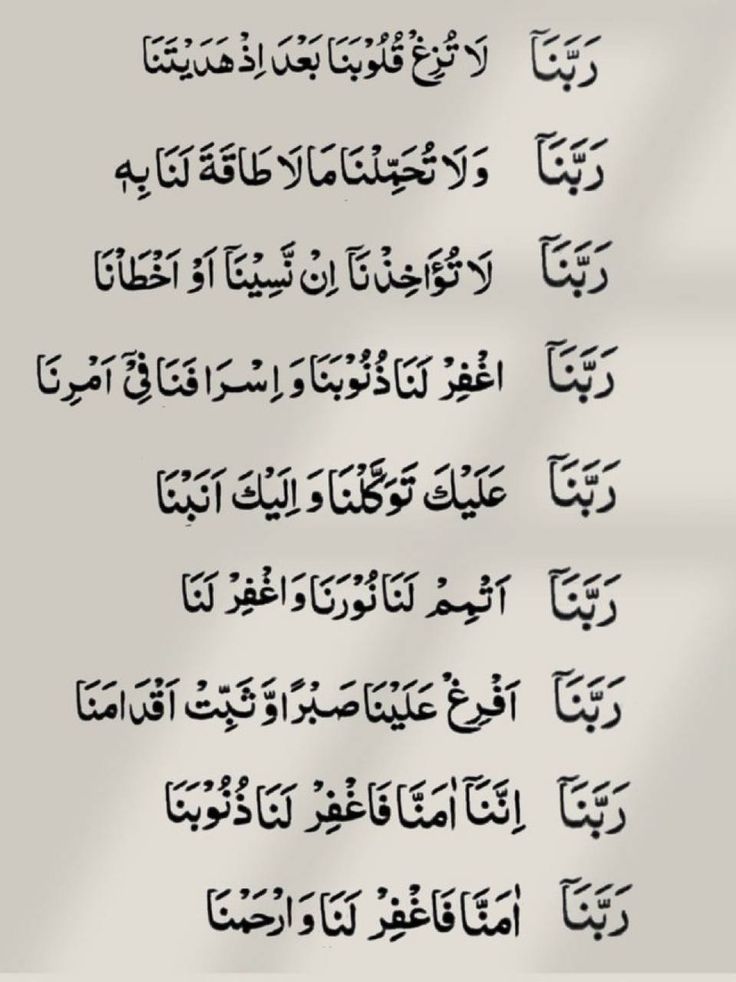 رَبَّنَآ لَا تُزِغْ قُلُوْبَنَا بَعْدَ اِذْ هَدَيْتَنَا
رَبَّنَآ وَلَا تُحَمِّلْنَا مَا لَا طَاقَةَ لَنَا بِهٖ
رَبَّنَآ لَا تُؤَاخِذْنَآ اِنْ نَّسِيْنَآ اَوْ اَخْطَاْنَا
رَبَّنَآ اغْفِرْ لَنَا ذُنُوْبَنَا وَ اِسْرَافَنَا فِيْٓ اَمْرِنَا
رَبَّنَآ عَلَيْكَ تَوَكَّلْنَا وَ اِلَيْكَ اَنَبْنَا
رَبَّنَآ اَتْمِمْ لَنَا نُوْرَنَا وَ اغْفِرْ لَنَا
رَبَّنَآ اَفْرِغْ عَلَيْنَا صَبْرًا وَّ ثَبِّتْ اَقْدَامَنَا
رَبَّنَآ اِنَّنَآ اٰمَنَّا فَاغْفِرْ لَنَا ذُنُوْبَنَا
رَبَّنَآ اٰمَنَّا فَاغْفِرْ لَنَا وَ ارْحَمْنَا